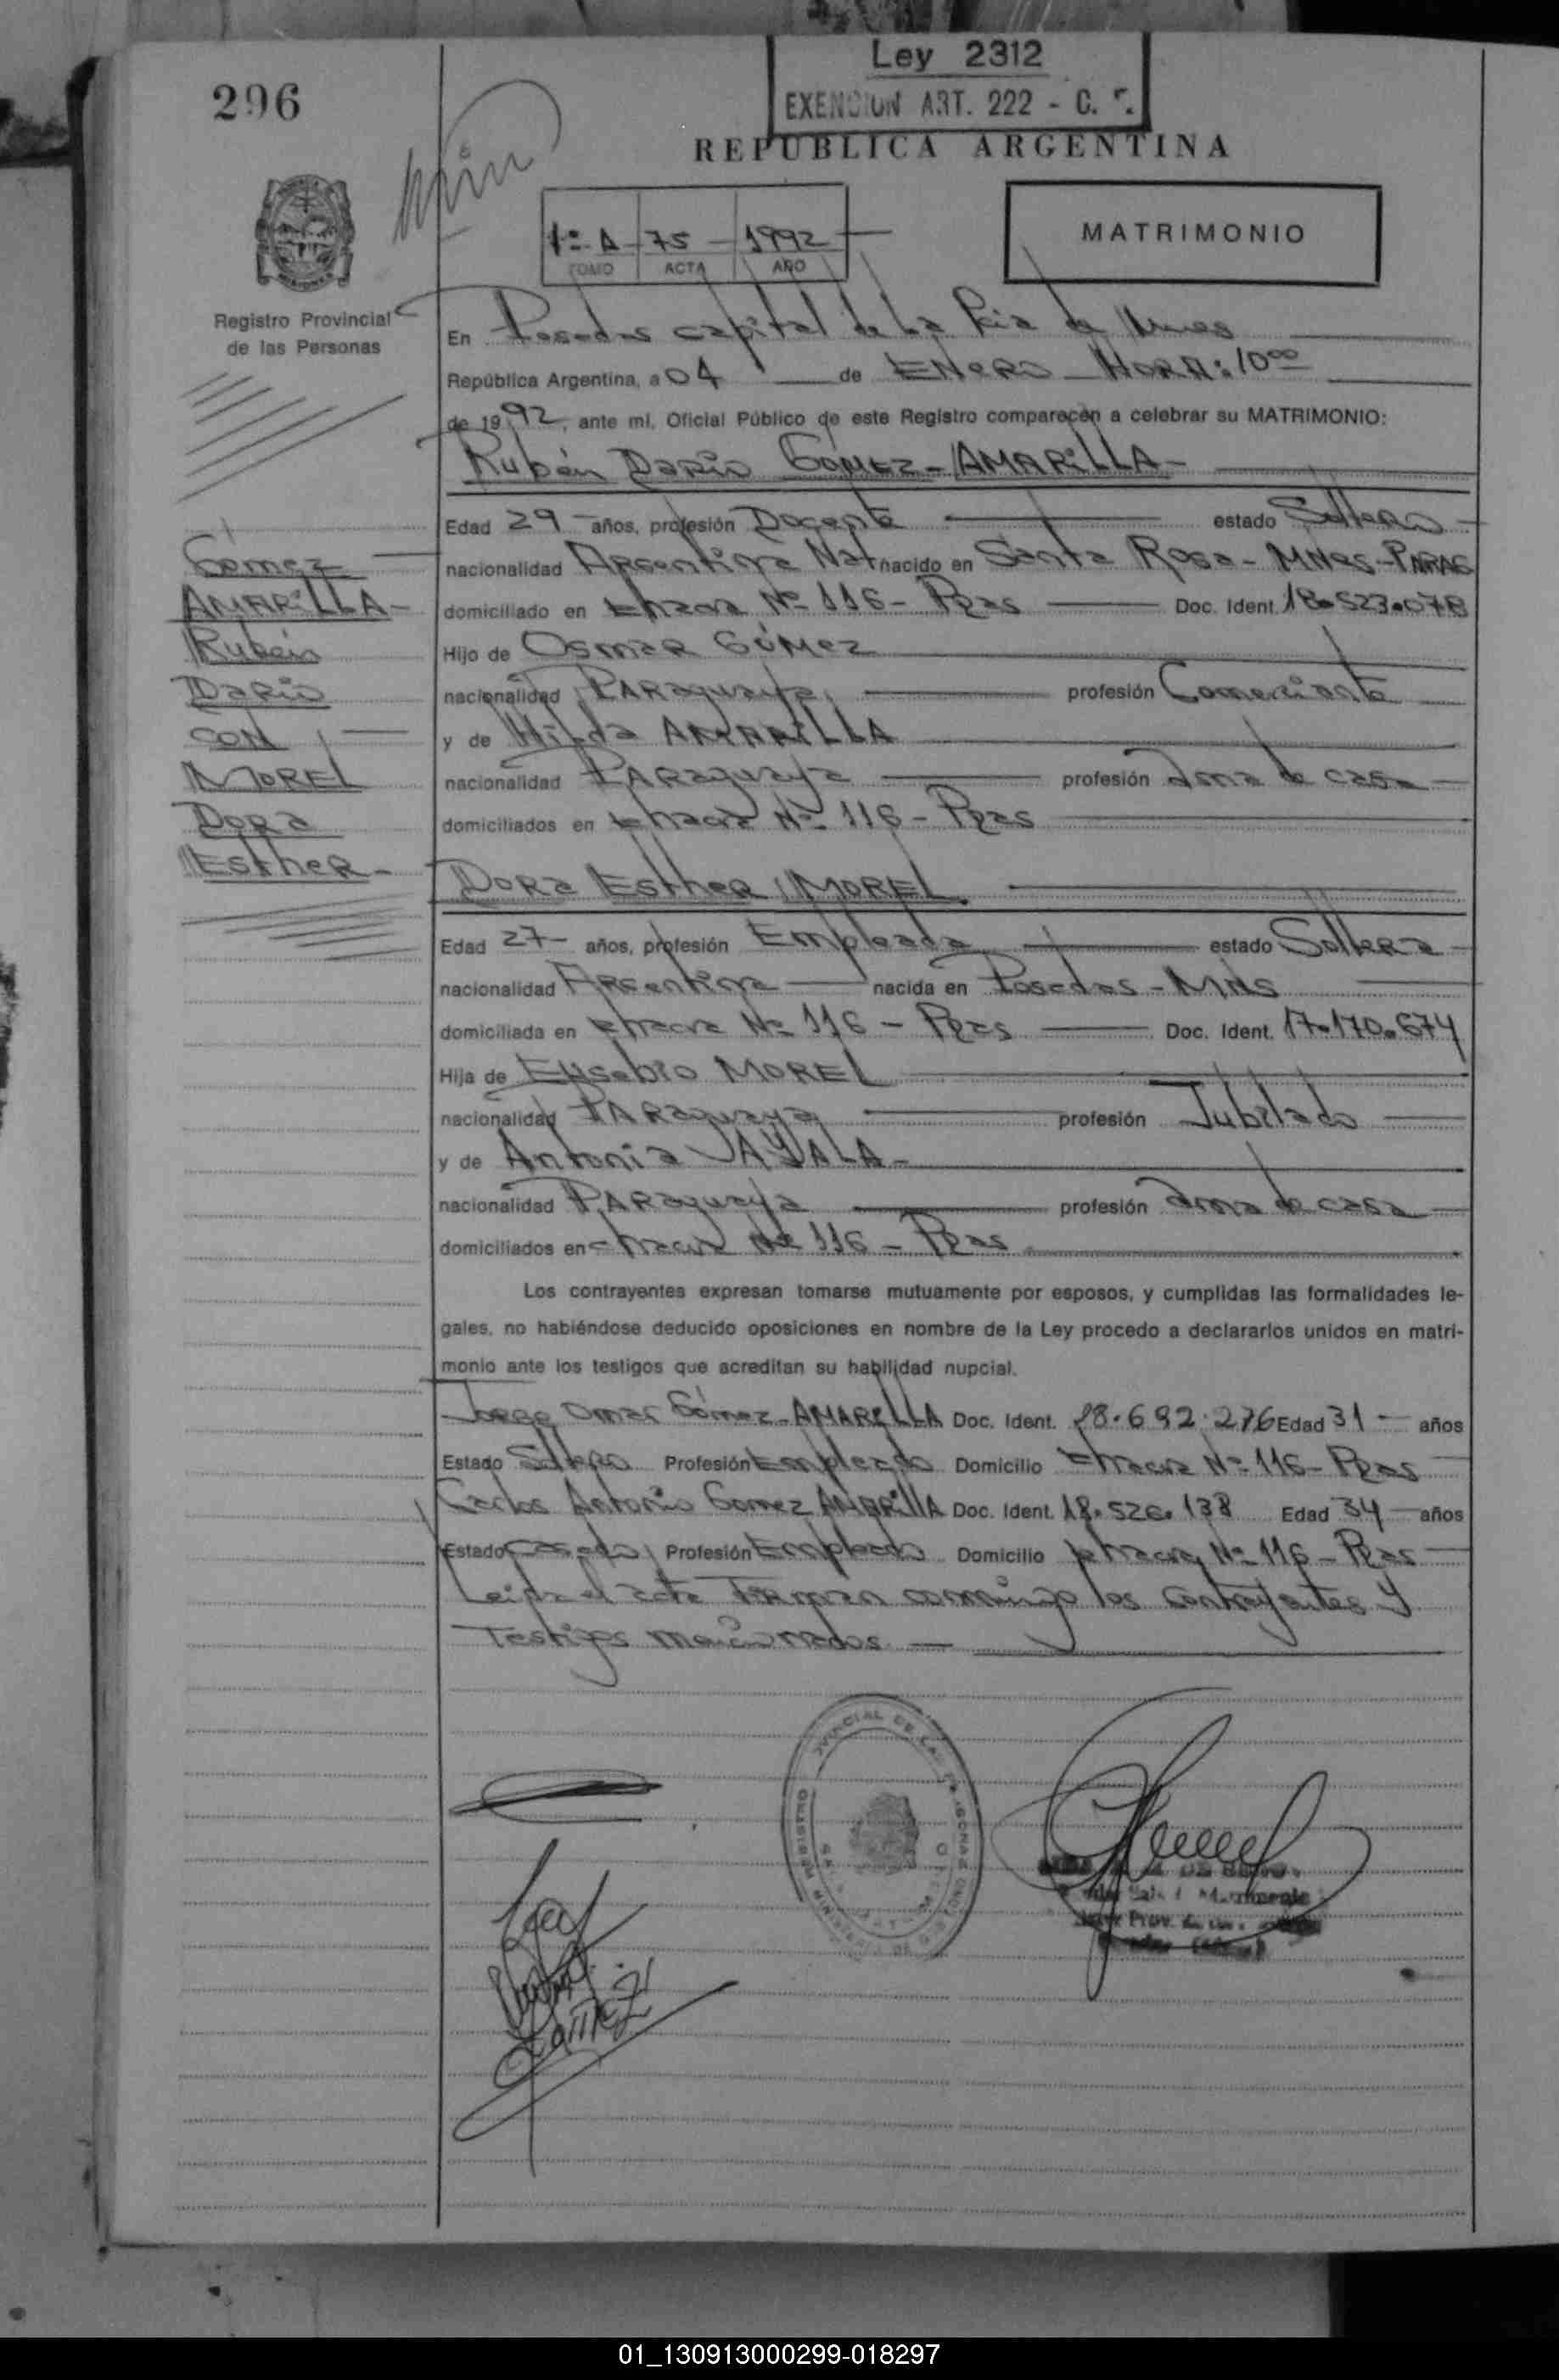 Ley 2312
EXENCION ART. 222 - C.
296
REPUBLICA ARGENTINA
1º A - 75 - 1992
TOMO ACTA AÑO
MATRIMONIO
Registro Provincial
de las Personas
En Posadas capital de la Pcia de Mnes
República Argentina, a 04 de ENERO HORA: 10⁰⁰
de 1992, ante mí, Oficial Público de este Registro comparecen a celebrar su MATRIMONIO:
Rubén Darío GÓMEZ-AMARILLA-
Edad 29 - años, profesión Docente estado Soltero
nacionalidad Argentina Nat nacido en Santa Rosa - MNes - PARAG
domiciliado en chacra Nº 116 - Pdas Doc. Ident. 18.523.078
Hijo de Osmar GÓMEZ
nacionalidad PARaguaya profesión Comerciante
y de Hilda AMARILLA
nacionalidad PARaguaya profesión ama de casa
domiciliados en chacra Nº 116 - Pdas
Gómez
AMARILLA-
Rubén
Darío
CON
MOREL
Dora
Esther-
DORa EstheR MOREL
Edad 27 - años, profesión Empleada estado Soltera
nacionalidad Argentina nacida en Posadas - MNS
domiciliada en chacra Nº 116 - Pdas Doc. Ident. 17.170.674
Hija de Eusebio MOREL
nacionalidad PARaguaya profesión Jubilado
y de Antonia AYALA-
nacionalidad PARaguaya profesión ama de casa
domiciliados en chacra Nº 116 - Pdas
Los contrayentes expresan tomarse mutuamente por esposos, y cumplidas las formalidades le-
gales, no habiéndose deducido oposiciones en nombre de la Ley procedo a declararlos unidos en matri-
monio ante los testigos que acreditan su habilidad nupcial.
Jorge Omar Gómez-AMARILLA Doc. Ident. 18.692.276 Edad 31 - años
Estado Soltero Profesión Empleado Domicilio chacra Nº 116 - Pdas
Carlos Antonio Gomez AMARILLA Doc. Ident. 18.526.138 Edad 34 años
Estado Casado Profesión Empleado Domicilio chacra Nº 116 - Pdas
Leida el acta Firman conmigo los contrayentes y
Testigos mencionados
01_130913000299-018297